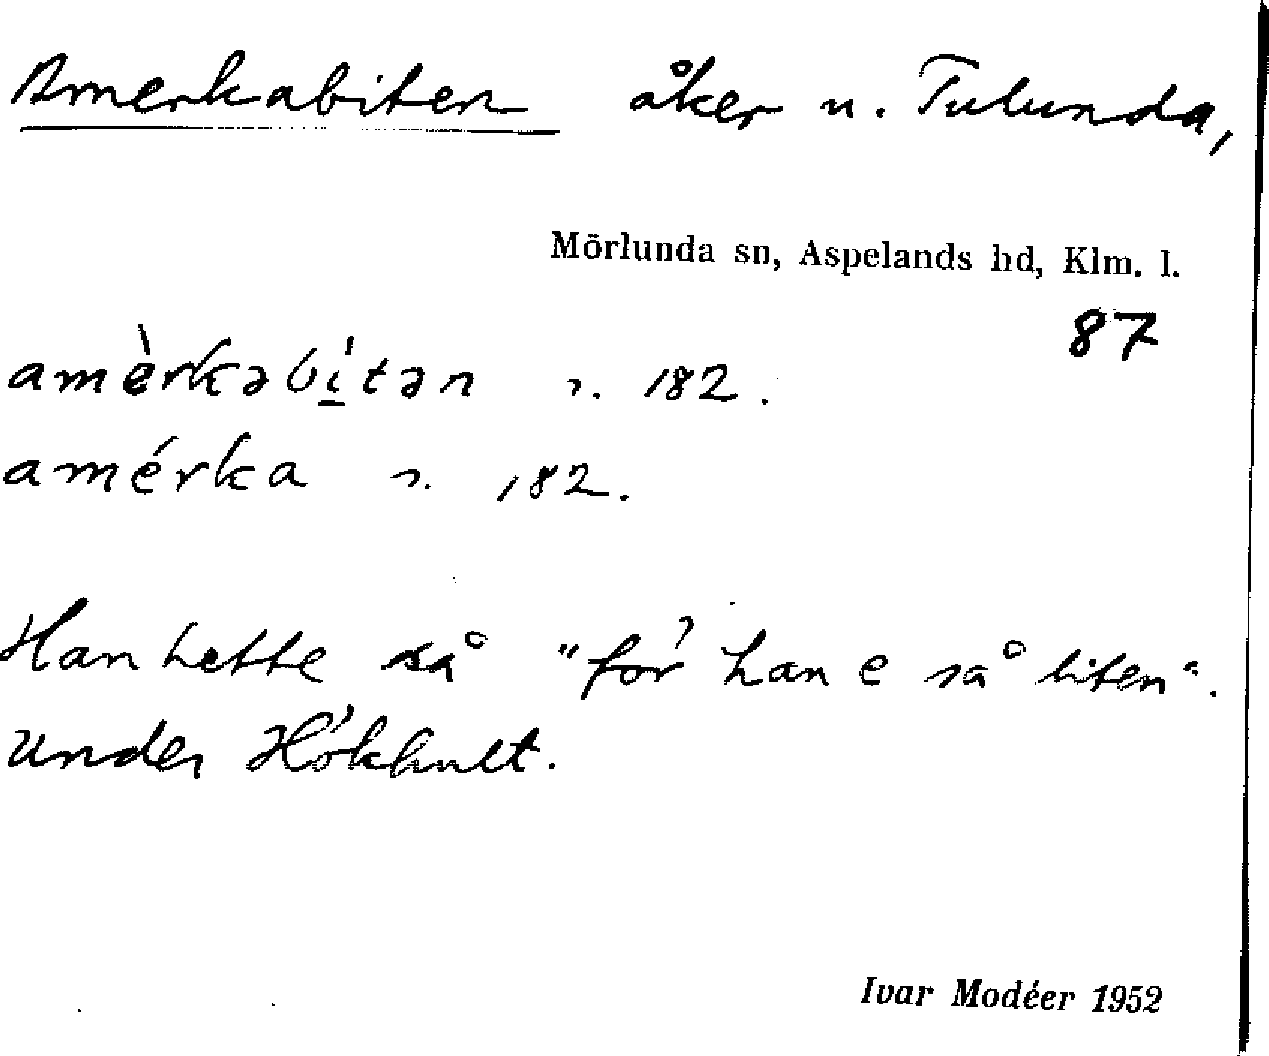 Amerkabiten åker u. Tulunda,
Mörlunda sn, Aspelands hd, Klm. l.
87
amèrkabítən s. 182.
amérka s. 182.
Han hette så "för han e så liten".
Under Hökhult.
Ivar Modéer 1952